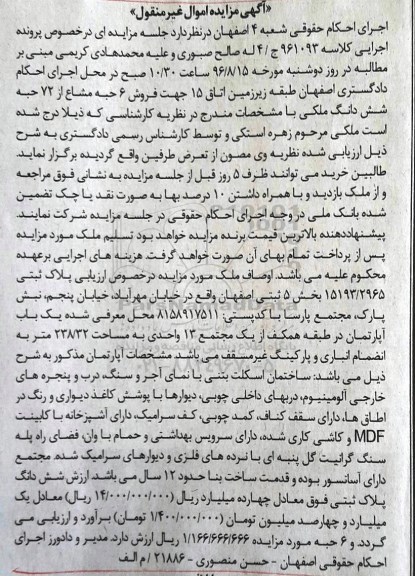 «آگهی مزایده اموال غیرمنقول»
اجرای احکام حقوقی شعبه ۴ اصفهان درنظردارد جلسه مزایده ای درخصوص پرونده
اجرایی کلاسه ۹۶۱۰۹۳ ج / ۴ له صالح صبوری و علیه محمدهادی کریمی مبنی بر
مطالبه در روز دوشنبه مورخه ۹۶/۸/۱۵ ساعت ۱۰/۳۰ صبح در محل اجرای احکام
دادگستری اصفهان طبقه زیرزمین اتاق ۱۵ جهت فروش ۶ حبه مشاع از ۷۲ حبه
شش دانگ ملکی با مشخصات مندرج در نظریه کارشناسی که ذیلا درج شده
است ملکی مرحوم زهره استکی و توسط کارشناس رسمی دادگستری به شرح
ذیل ارزیابی شده نظریه وی مصون از تعرض طرفین واقع گردیده برگزار نماید.
طالبین خرید می توانند ظرف ۵ روز قبل از جلسه مزایده به نشانی فوق مراجعه
و از ملک بازدید و با همراه داشتن ۱۰ درصد بها به صورت نقد یا چک تضمین
شده بانک ملی در وجه اجرای احکام حقوقی در جلسه مزایده شرکت نمایند.
پیشنهاددهنده بالاترین قیمت برنده مزایده خواهد بود تسلیم ملک مورد مزایده
پس از پرداخت تمام بهای آن صورت خواهد گرفت. هزینه های اجرایی برعهده
محکوم علیه می باشد. اوصاف ملک مورد مزایده درخصوص ارزیابی پلاک ثبتی
۱۵۱۹۳/۲۹۶۵ بخش ۵ ثبتی اصفهان واقع در خیابان مهرآباد، خیابان پنجم، نبش
پارک، مجتمع پارسا با کدپستی: ۸۱۵۸۹۱۷۵۱۱ محل معرفی شده یک باب
آپارتمان در طبقه همکف از یک مجتمع ۱۳ واحدی به مساحت ۲۳۸/۳۲ متر به
انضمام انباری و پارکینگ غیرمسقف می باشد. مشخصات آپارتمان مذکور به شرح
ذیل می باشد: ساختمان اسکلت بتنی با نمای آجر و سنگ، درب و پنجره های
خارجی آلومینیوم، دربهای داخلی چوبی، دیوارها با پوشش کاغذ دیواری و رنگ در
اطاق ها، دارای سقف کناف، کمد چوبی، کف سرامیک، دارای آشپزخانه با کابینت
MDF و کاشی کاری شده، دارای سرویس بهداشتی و حمام با وان، فضای راه پله
سنگ گرانیت گل پنبه ای با نرده های فلزی و دیوارهای سرامیک شده. مجتمع
دارای آسانسور بوده و قدمت ساخت بنا حدود ۱۲ سال می باشد. ارزش شش دانگ
پلاک ثبتی فوق معادل چهارده میلیارد ریال (۱۴/۰۰۰/۰۰۰/۰۰۰ ریال) معادل یک
میلیارد و چهارصد میلیون تومان (۱/۴۰۰/۰۰۰/۰۰۰ تومان) برآورد و ارزیابی می
گردد. و ۶ حبه مورد مزایده ۱/۱۶۶/۶۶۶/۶۶۶ ریال ارزش دارد. مدیر و دادورز اجرای
احکام حقوقی اصفهان - حسن منصوری - ۲۱۸۸۶ / م الف